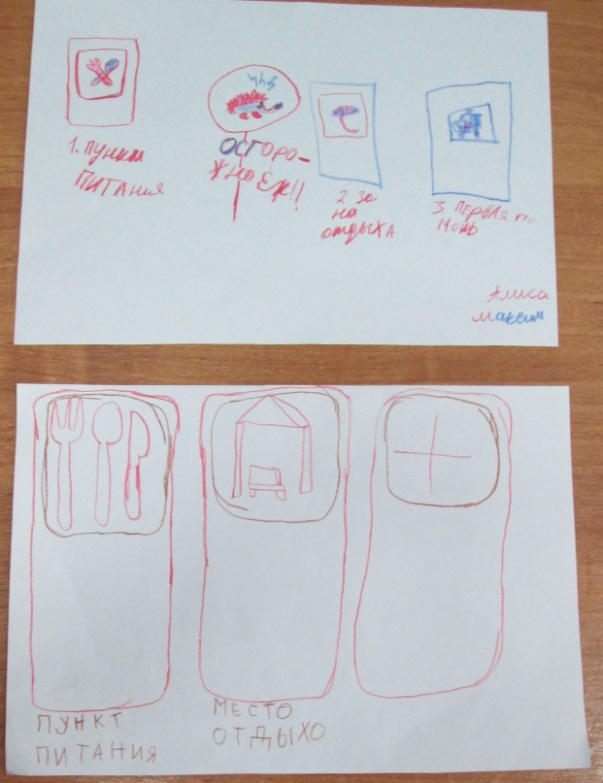 1. ПУНКТ
ПИТАНИЯ
ОСТОРО-
ЖНО ЁЖ!!
2. Зо
на
отдыха
3. ПЕРВАЯ по
МОЩЬ
Алиса
Максим
ПУНКТ
ПИТАНИЯ
МЕСТО
ОТДЫХО